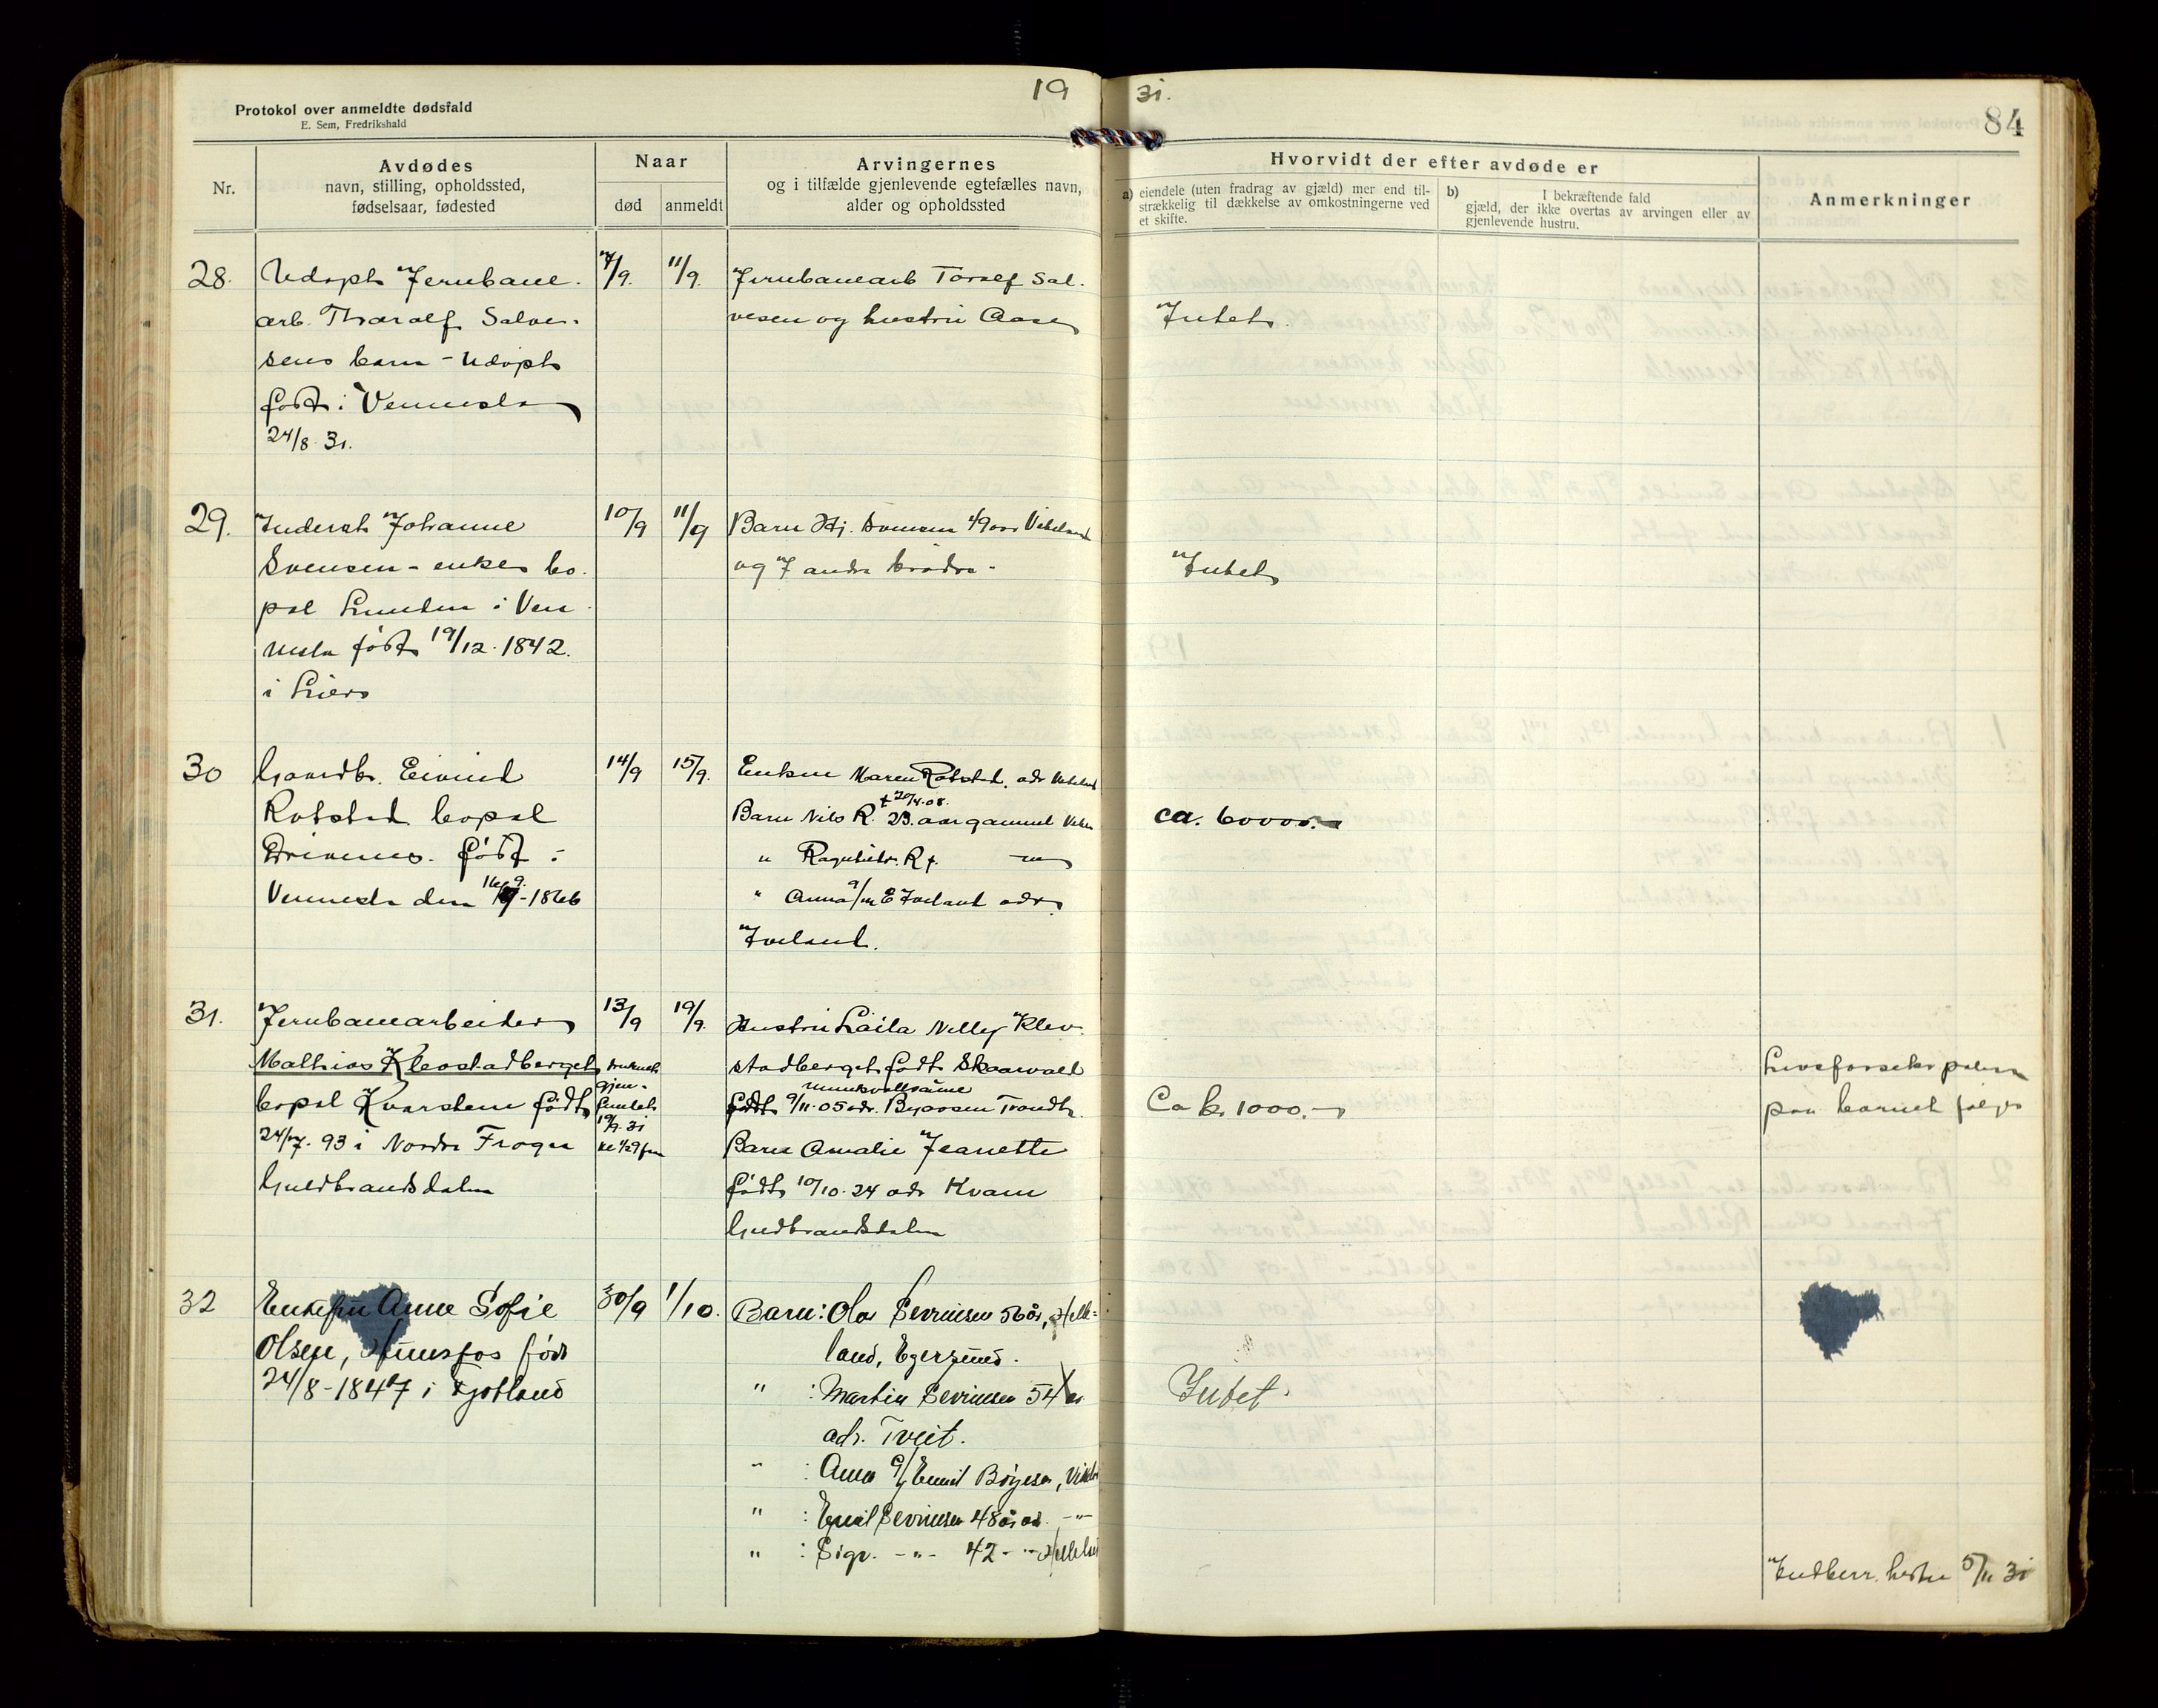 Protokol over anmeldte dødsfald
E. Sem, Fredrikshald
19
31.
84
Nr.
Avdødes
navn, stilling, opholdssted,
fødselsaar, fødested
Naar
død
anmeldt
Arvingernes
og i tilfælde gjenlevende egtefælles navn,
alder og opholdssted
Hvorvidt der efter avdøde er
a) eiendele (uten fradrag av gjæld) mer end til-
strækkelig til dækkelse av omkostningerne ved
et skifte.
b) I bekræftende fald
gjæld, der ikke overtas av arvingen eller av
gjenlevende hustru.
Anmerkninger
28.
Udøpt Jernbane-
arb. Tharalf Salve-
sens barn - Udøpt
født i Vennesla
24/8 31.
7/9.
11/9.
Jernbanearb Toralf Sal-
vesen og hustru Aase
Intet.
29.
Inderst Johanne
Svensen - enke bo-
pæl Lunden i Ven-
nesla født 19/12. 1842.
i Lier
10/9
11/9
Barn Hj. Svensen 49 aar Vikeland
og 7 andre brødre -
Intet
30
Gaardbr. Eivind
Rotstad bopæl
Drivenes. født i
Vennesla den 16/9-1866
14/9
15/9.
Enken Maren Rotstad. adr Vikeland
+ 20/4.08.
Barn Nils R. 23. aar gammel
" Ragnhild. R
" Anna g/m E Iveland adr.
Iveland.
ca. 60000.-
31.
Jernbanearbeider
Mathias Klevstadberget
bopæl Kvarstein født
24/7. 93 i Nordre Frogn
Guldbrandsdalen
13/9
druknet
gjen-
fundet
19/9. 31
19/9.
Hustru Laila Nelly Klev-
stadberget født Skaarvold
født 9/11-05 adr. Byaasen Trondh.
Barn Amalie Jeanette
født 10/10-24 adr Kvam
Gudbrandsdalen
Ca kr 1000.-
Livsforsikr polisen
paa barnet følger
32
Enkefru Anne Sofie
Olsen, Hunsfos født
24/8-1847 i Gjotland
30/9
1/10.
Barn: Ola Sevrinsen 56 år, Helle-
land, Egersund.
" : Martin Sevrinsen 54 år
adr. Tveit.
" : Anna g/ Emil Böyesen,
" : Emil Sevrinsen 48 år ad. -"-
" : Sigv. -"- 42 -"- Helleland
Intet.
Indberr. herom 5/11 31